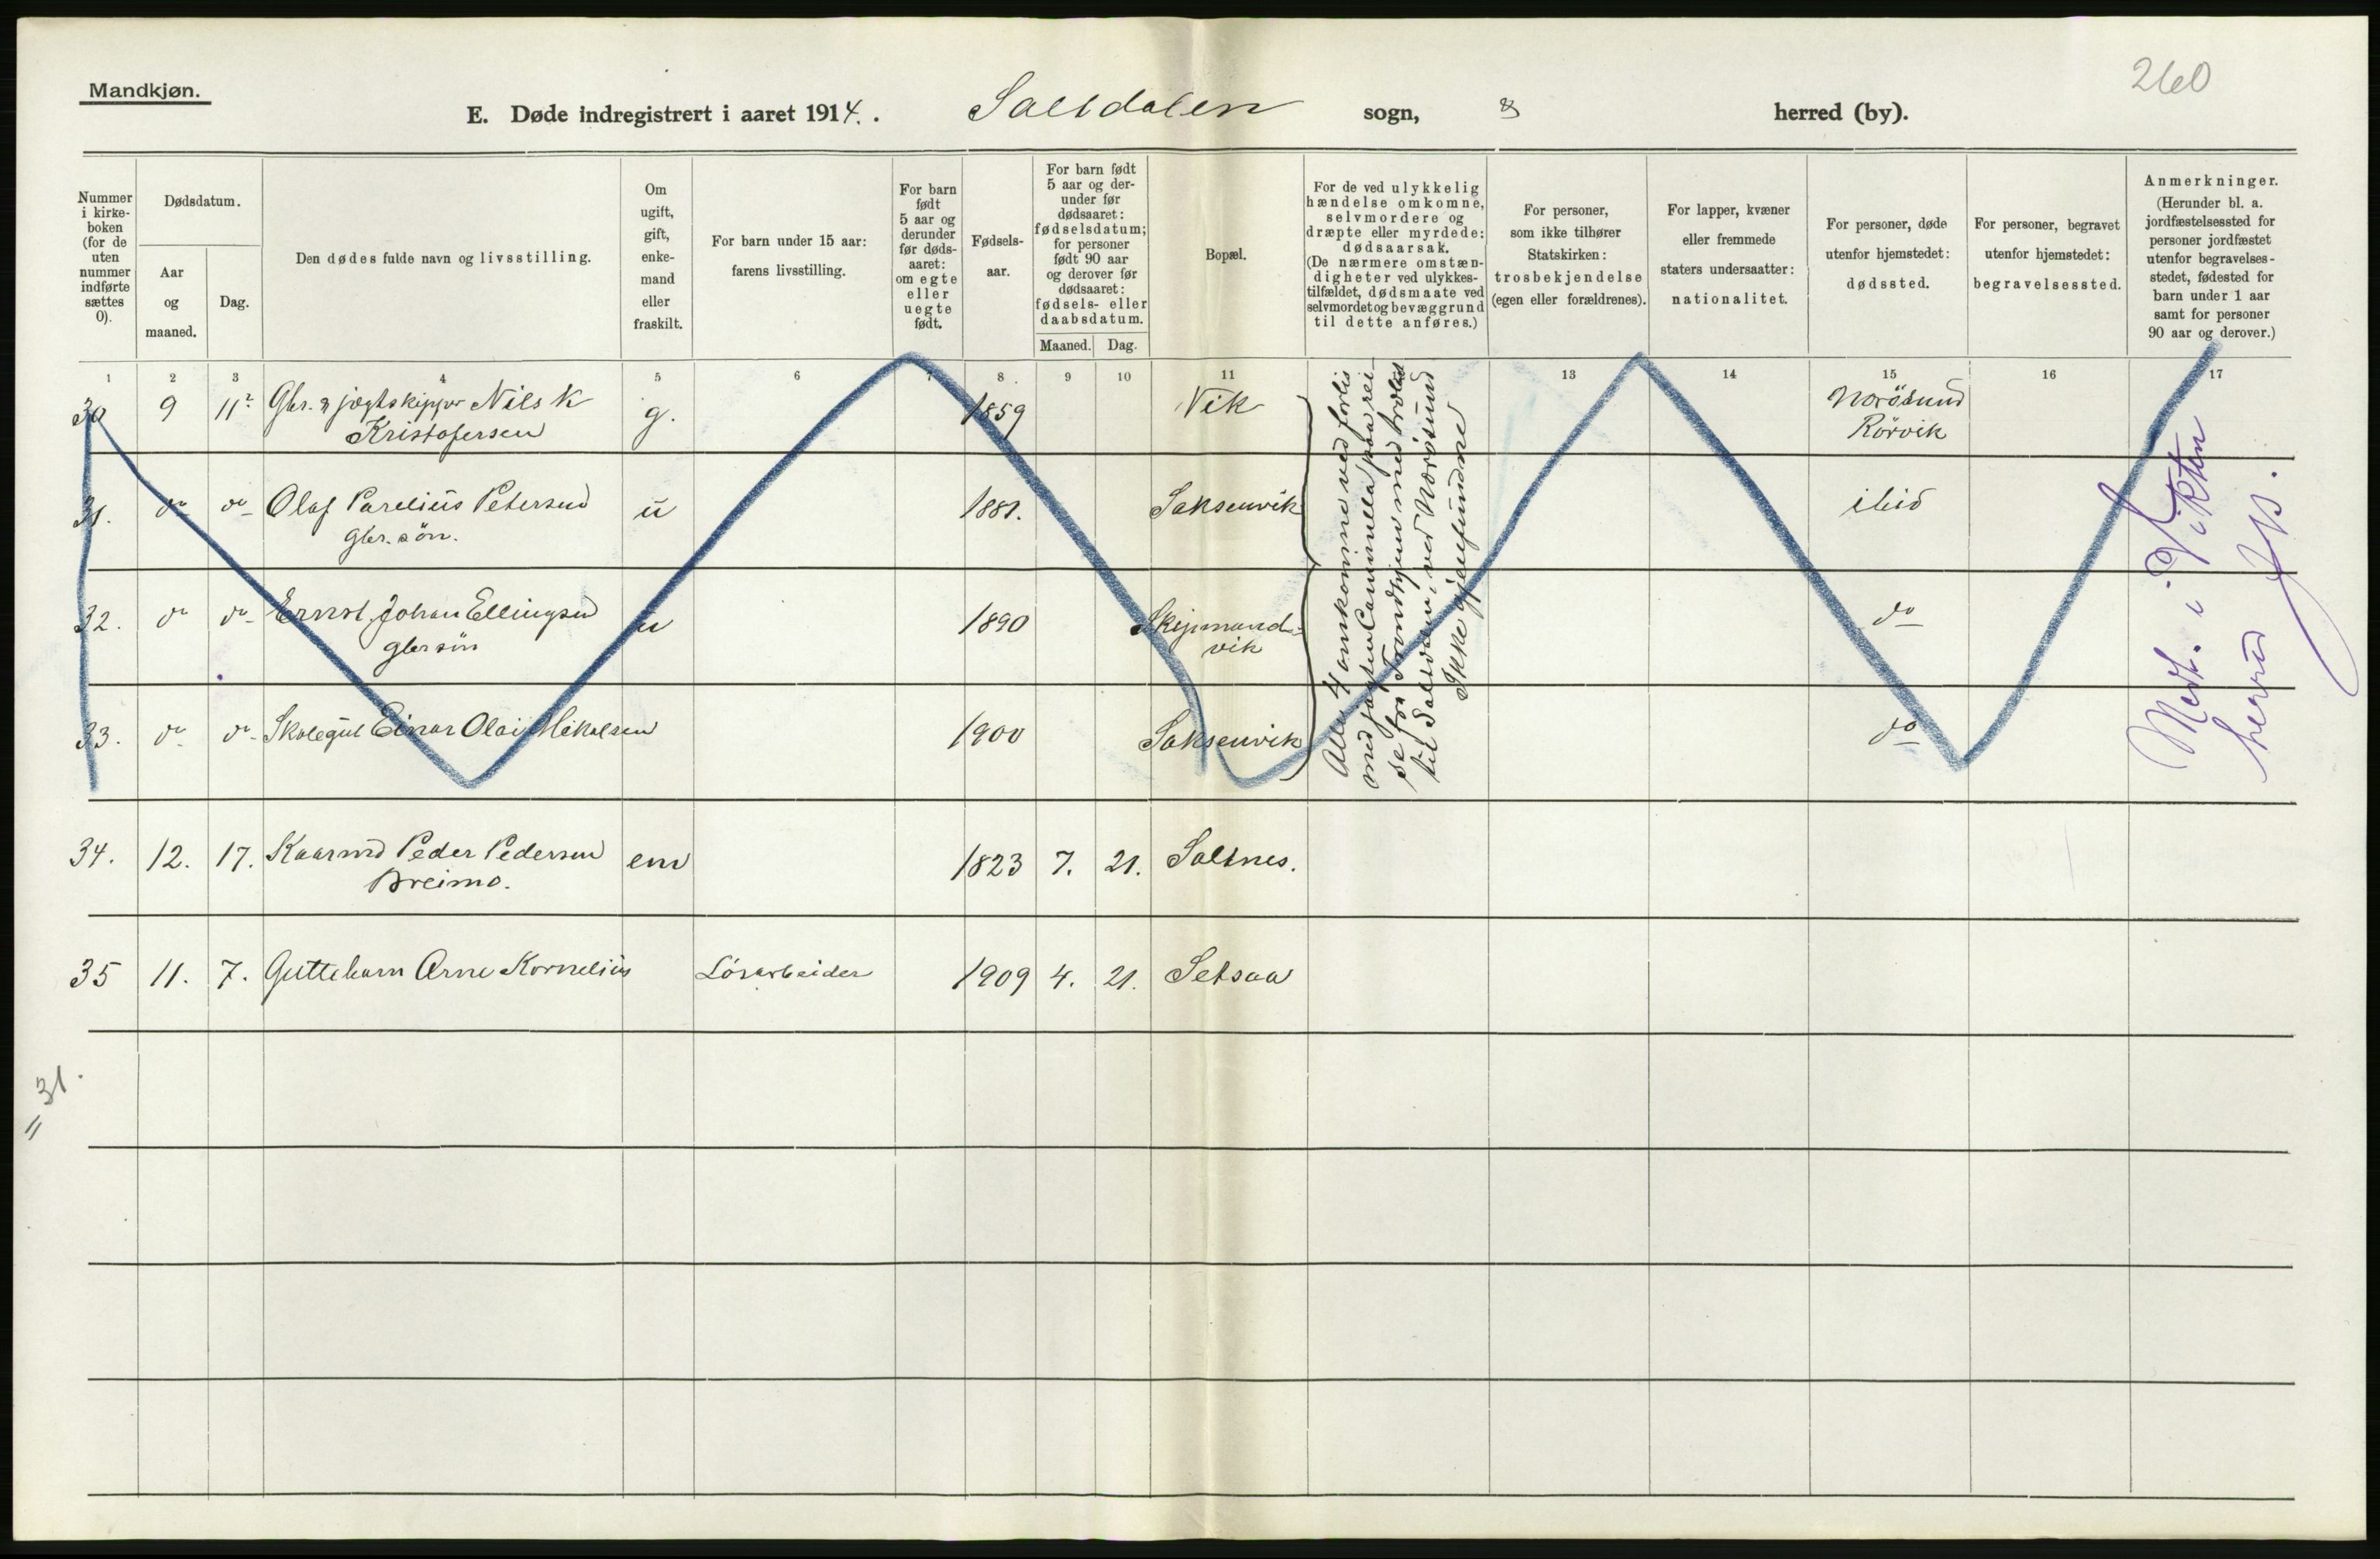 Mandkjøn.
260
E. Døde indregistrert i aaret 1914. Saltdalen sogn, herred (by).
Nummer i kirkeboken (for de uten nummer indførte sættes 0).
Dødsdatum.
Aar og maaned.
Dag.
Den dødes fulde navn og livsstilling.
Om ugift, gift, enkemand eller fraskilt.
For barn under 15 aar: farens livsstilling.
For barn født 5 aar og derunder før dødsaaret: om egte eller uegte født.
Fødselsaar.
For barn født 5 aar og derunder før dødsaaret: fødselsdatum; for personer født 90 aar og derover før dødsaaret: fødsels- eller daabsdatum.
Maaned. Dag.
Bopæl.
For de ved ulykkelig hændelse omkomne, selvmordere og dræpte eller myrdede: dødsaarsak. (De nærmere omstændigheter ved ulykkestilfældet, dødsmaate ved selvmordet og bevæggrund til dette anføres.)
For personer, som ikke tilhører Statskirken: trosbekjendelse (egen eller forældrenes).
For lapper, kvæner eller fremmede staters undersaatter: nationalitet.
For personer, døde utenfor hjemstedet: dødssted.
For personer, begravet utenfor hjemstedet: begravelsessted.
Anmerkninger. (Herunder bl. a. jordfæstelsessted for personer jordfæstet utenfor begravelsesstedet, fødested for barn under 1 aar samt for personer 90 aar og derover.)
1 2 3 4 5 6 7 8 9 10 11 13 14 15 16 17
30 9 11 Gbr. & jægtskipper Nils K g. 1859 Vik Nørösund
Kristofersen Rörvik
31. do do Olaf Parelius Petersen u 1881. Saksenvik ibid
gbr. søn.
32. do do Ernst Johan Ellingsen u 1890 Skipmand-
gbr søn vik do
33. do do Skolegut Einar Olai Mikalsen 1900 Saksenvik do
Alle 4 omkommne ved forlis
med jagten Camilla paa rei-
se fra Trondhjem med
til Saltdalen, ved Nørösund
Ikke gjenfundne
Medt. i Vikten
herred
34. 12. 17. Kaarmd Peder Pedersen em 1823 7. 21. Saltnes.
Breimo.
35 11. 7. Guttebarn Arne Kornelius Lösarbeider 1909 4. 21. Setsaa
= 31.